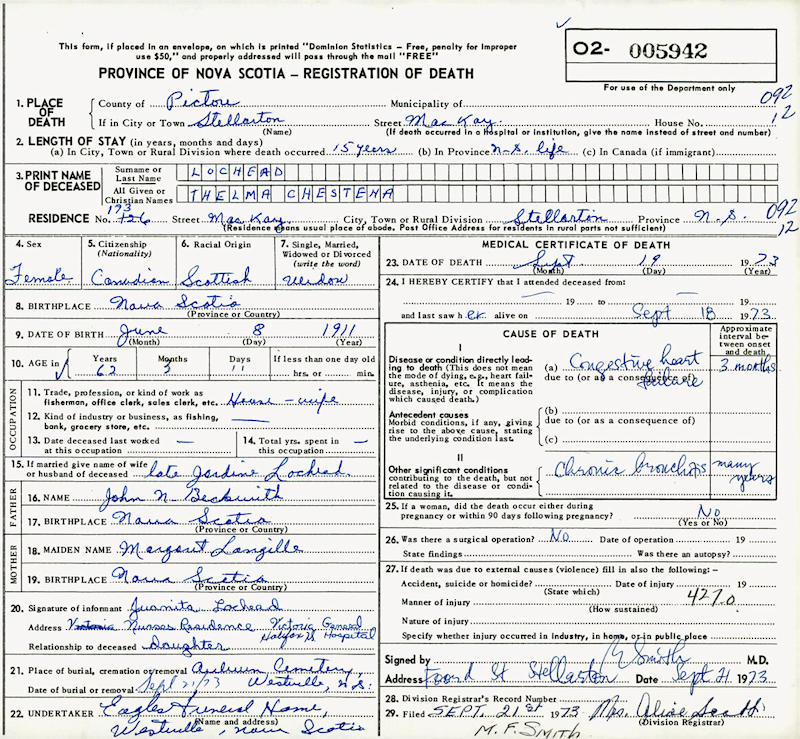 This form, if placed in an envelope, on which is printed "Dominion Statistics – Free, penalty for improper
use $50," and properly addressed will pass through the mail "FREE"
PROVINCE OF NOVA SCOTIA – REGISTRATION OF DEATH
O2- 005942
For use of the Department only
092
12
1. PLACE OF DEATH
County of Pictou Municipality of
If in City or Town Stellarton Street MacKay House No.
(Name) (If death occurred in a hospital or institution, give the name instead of street and number)
2. LENGTH OF STAY (in years, months and days)
(a) In City, Town or Rural Division where death occurred 15 years (b) In Province N.S. life (c) In Canada (if immigrant)
3. PRINT NAME OF DECEASED
Surname or Last Name LOCHEAD
All Given or Christian Names THELMA CHESTENA
173
RESIDENCE No. 126 Street MacKay City, Town or Rural Division Stellarton Province N.S. 092
12
(Residence means usual place of abode. Post Office Address for residents in rural parts not sufficient)
4. Sex
Female
5. Citizenship (Nationality)
Canadian
6. Racial Origin
Scottish
7. Single, Married, Widowed or Divorced (write the word)
Widow
8. BIRTHPLACE Nova Scotia
(Province or Country)
9. DATE OF BIRTH June 8 1911
(Month) (Day) (Year)
10. AGE in Years Months Days If less than one day old
62 3 11 hrs. or min.
OCCUPATION
11. Trade, profession, or kind of work as fisherman, office clerk, sales clerk, etc. House-wife
12. Kind of industry or business, as fishing, bank, grocery store, etc. —
13. Date deceased last worked at this occupation —
14. Total yrs. spent in this occupation —
15. If married give name of wife or husband of deceased late Jardine Lochead
FATHER
16. NAME John N. Beckwith
17. BIRTHPLACE Nova Scotia
(Province or Country)
MOTHER
18. MAIDEN NAME Margaret Langille
19. BIRTHPLACE Nova Scotia
(Province or Country)
20. Signature of informant Juanita Lochead
Address Victoria Nurses Residence Victoria General
Halifax Hospital
Relationship to deceased Daughter
21. Place of burial, cremation or removal Auburn Cemetery,
Date of burial or removal Sept 21/73 Westville, N.S.
22. UNDERTAKER Eagles Funeral Home,
(Name and address)
Westville, Nova Scotia
MEDICAL CERTIFICATE OF DEATH
23. DATE OF DEATH Sept 19 1973
(Month) (Day) (Year)
24. I HEREBY CERTIFY that I attended deceased from:
— 19 — to — 19
and last saw her alive on Sept 18 1973
CAUSE OF DEATH
Approximate interval between onset and death
I
Disease or condition directly leading to death (This does not mean the mode of dying, e.g., heart failure, asthenia, etc. It means the disease, injury, or complication which caused death.)
(a) Congestive heart failure 3 months
due to (or as a consequence of)
Antecedent causes
Morbid conditions, if any, giving rise to the above cause, stating the underlying condition last.
(b)
due to (or as a consequence of)
(c)
II
Other significant conditions contributing to the death, but not related to the disease or condition causing it.
Chronic bronchitis many years
25. If a woman, did the death occur either during pregnancy or within 90 days following pregnancy? No
(Yes or No)
26. Was there a surgical operation? No Date of operation 19
State findings Was there an autopsy?
27. If death was due to external causes (violence) fill in also the following:–
Accident, suicide or homicide? Date of injury 19
(State which)
4270
Manner of injury
(How sustained)
Nature of injury
Specify whether injury occurred in industry, in home, or in public place
Signed by Smith M.D.
Address Foord St Stellarton Date Sept 21 1973
28. Division Registrar's Record Number
29. Filed SEPT. 21st 1973 Mrs. Alice Scott
(Division Registrar)
M.F. SMITH